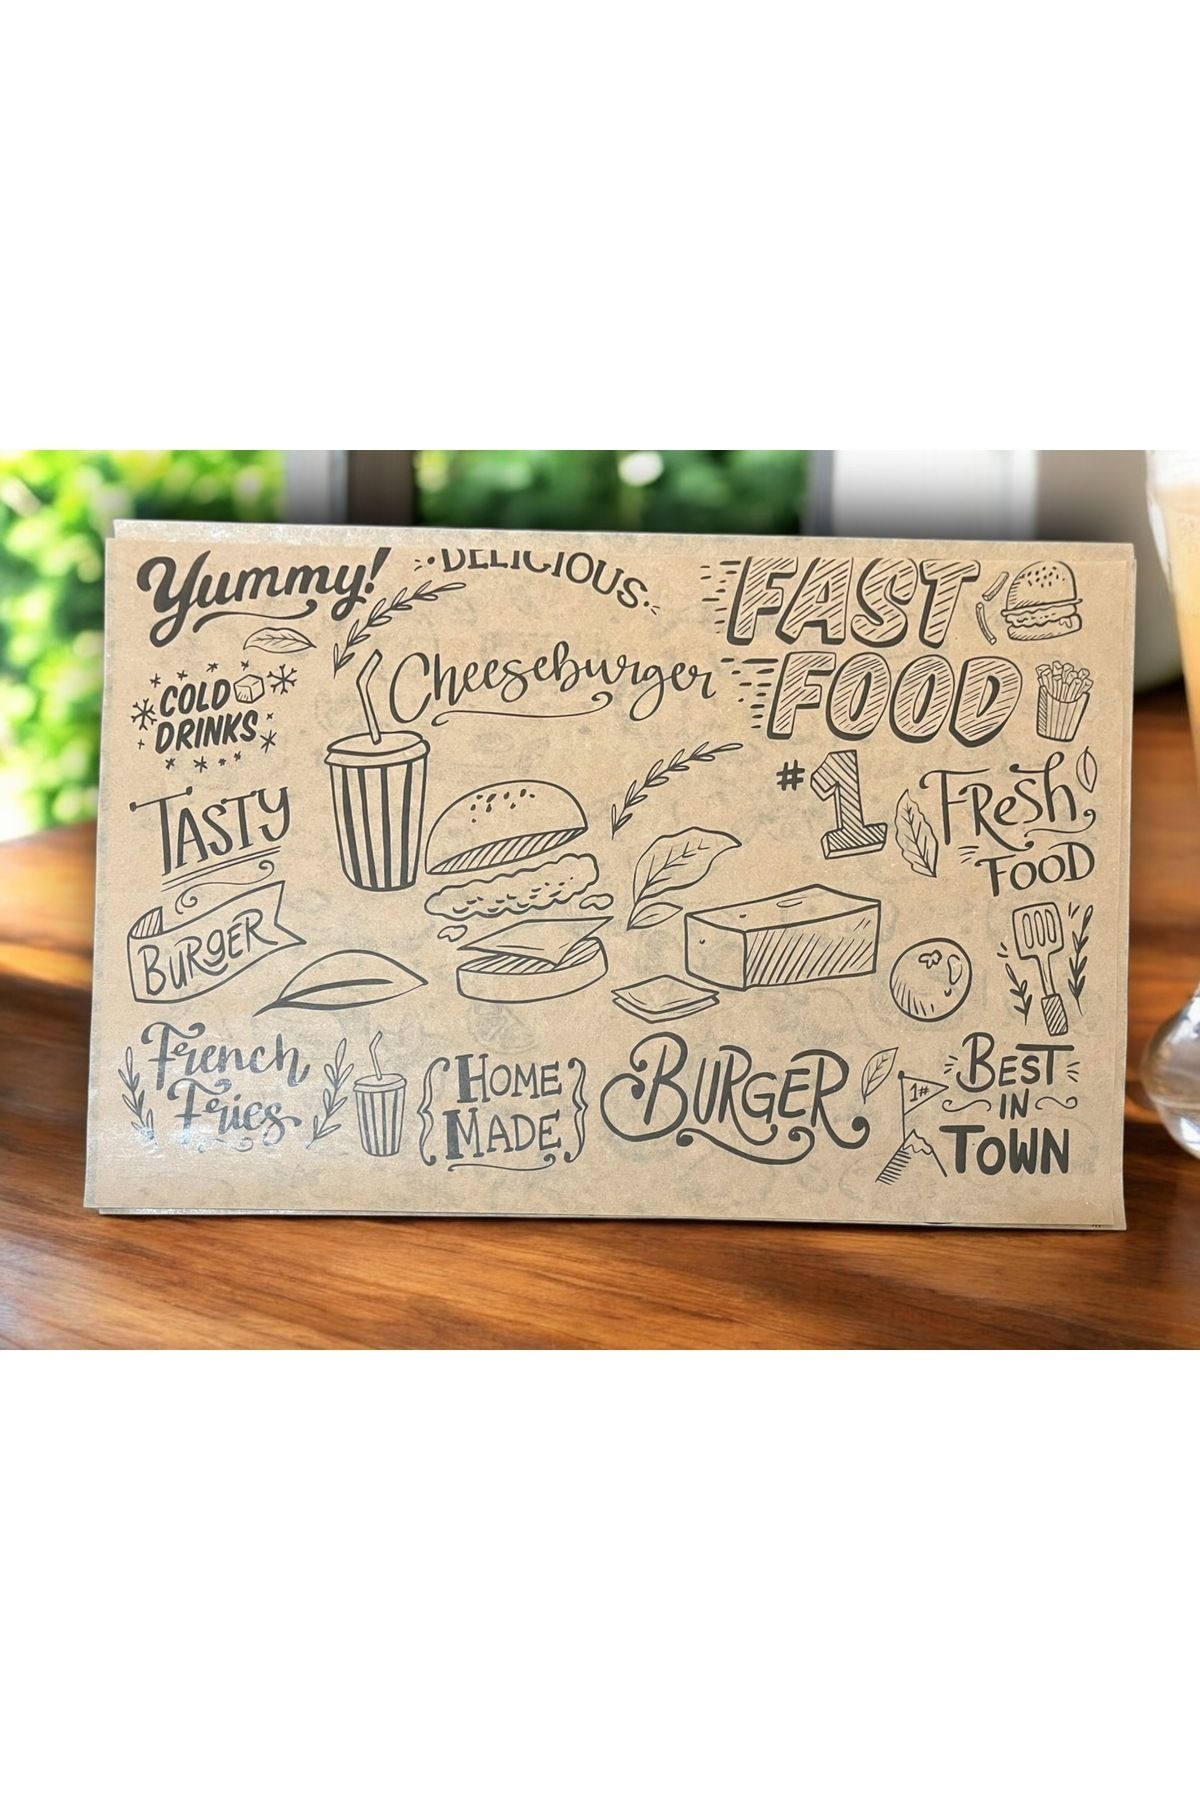 Yummy!
DELICIOUS
FAST
FOOD
Cheeseburger
COLD
DRINKS
TASTY
#1
FResh
FOOD
BURGER
French
Fries
HOME
MADE
BURGER
1#
BEST
IN
TOWN